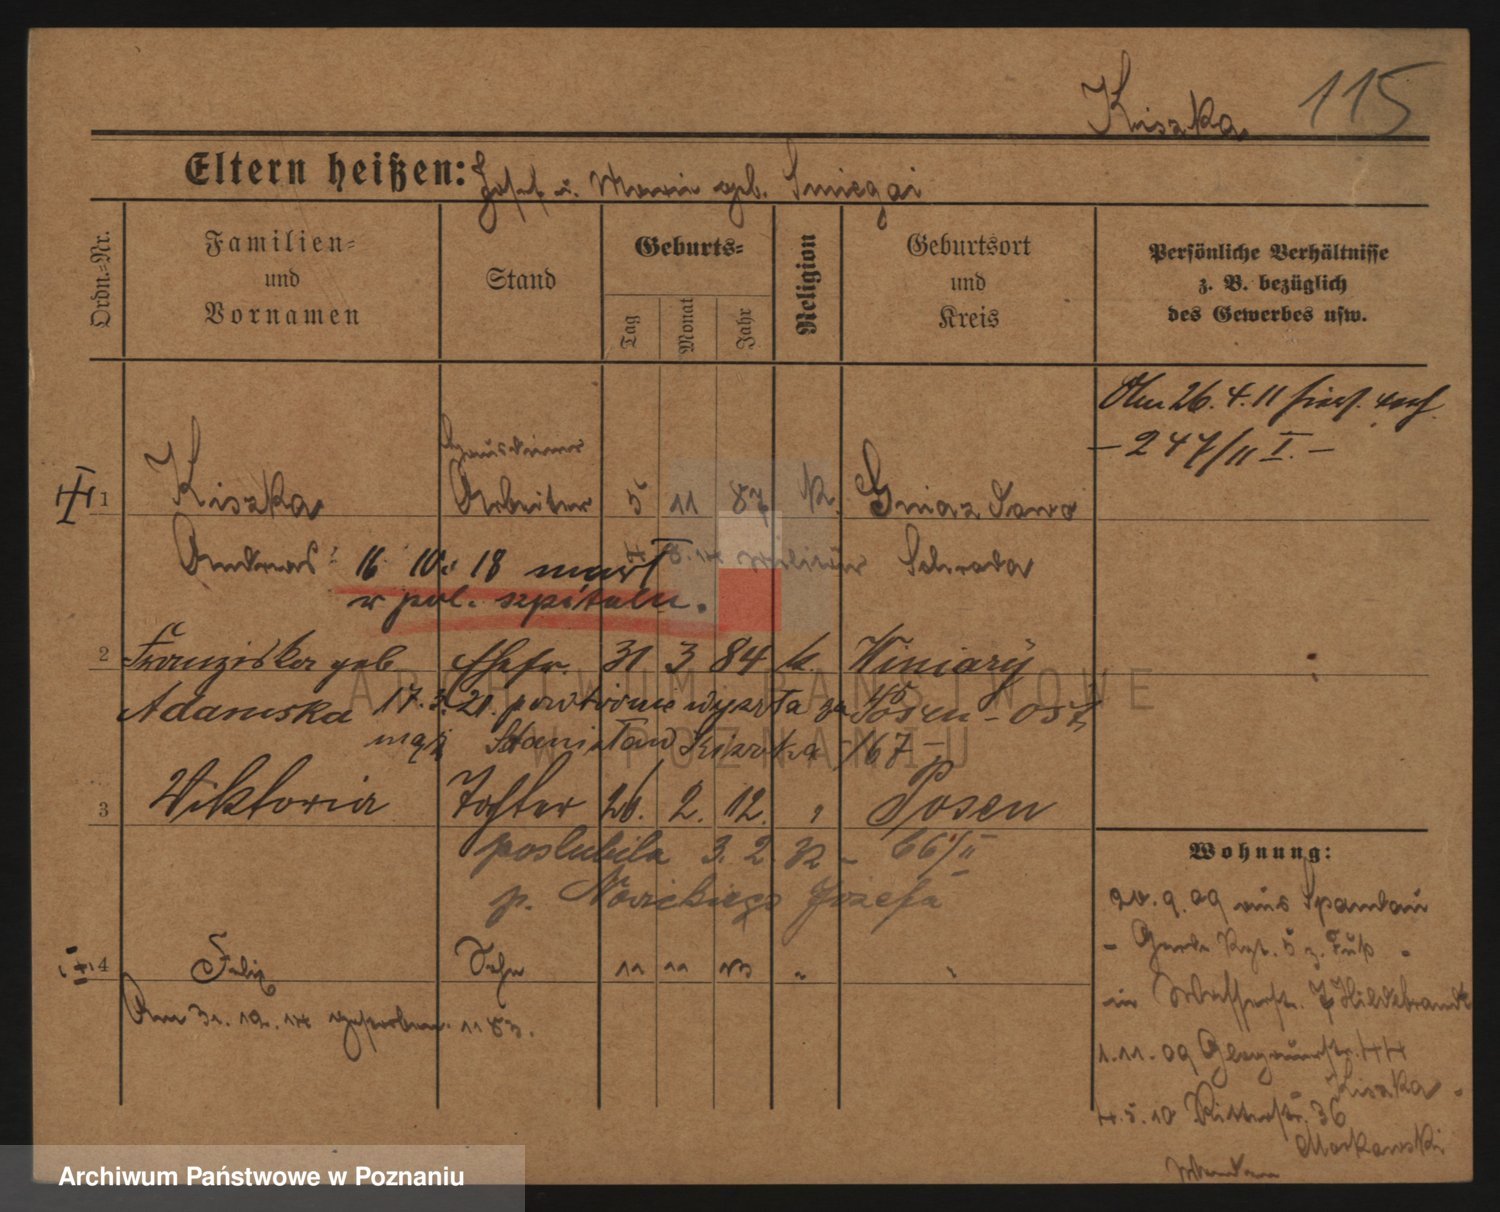 Kiszka 115
Eltern heißen: Josef u. Maria geb. Smiegai
Ordn.-Nr.
Familien-
und
Vornamen
Stand
Geburts-
Tag
Monat
Jahr
Religion
Geburtsort
und
Kreis
Persönliche Verhältnisse
z. B. bezüglich
des Gewerbes usw.
26. 4. 11
- 247/11 I. -
Hausdiener
1 Kiszka Arbeiter 5 11 87 k.
Andreas 4 8. 14 Militär Schroda
16 10. 18 mart
w pol. szpitalu.
2 Franziska geb. Ehefr. 31 3 84 k. Winiary
Adamska Posen-Ost
17. 3. 21. powtórnie wyszła za
mąż Stanisław Kiszka - 167 -
3 Wiktoria Tochter 26. 2. 12. " Posen
poślubiła 3. 2. 32 - 66/II
p. Nowickiego Józefa
4 Felix Sohn 11 11 13 " "
Am 31. 12. 14 gestorben. 1183.
Wohnung:
20. 9. 09 aus Spandau
- Garde Rgt. 5 z. Fuß -
Hildebrandt
1. 11. 09 Glogauerstr. 44
Kiszka.
4. 5. 10 Ritterstr. 36
Markowski
ARCHIWUM PAŃSTWOWE
W POZNANIU
Archiwum Państwowe w Poznaniu